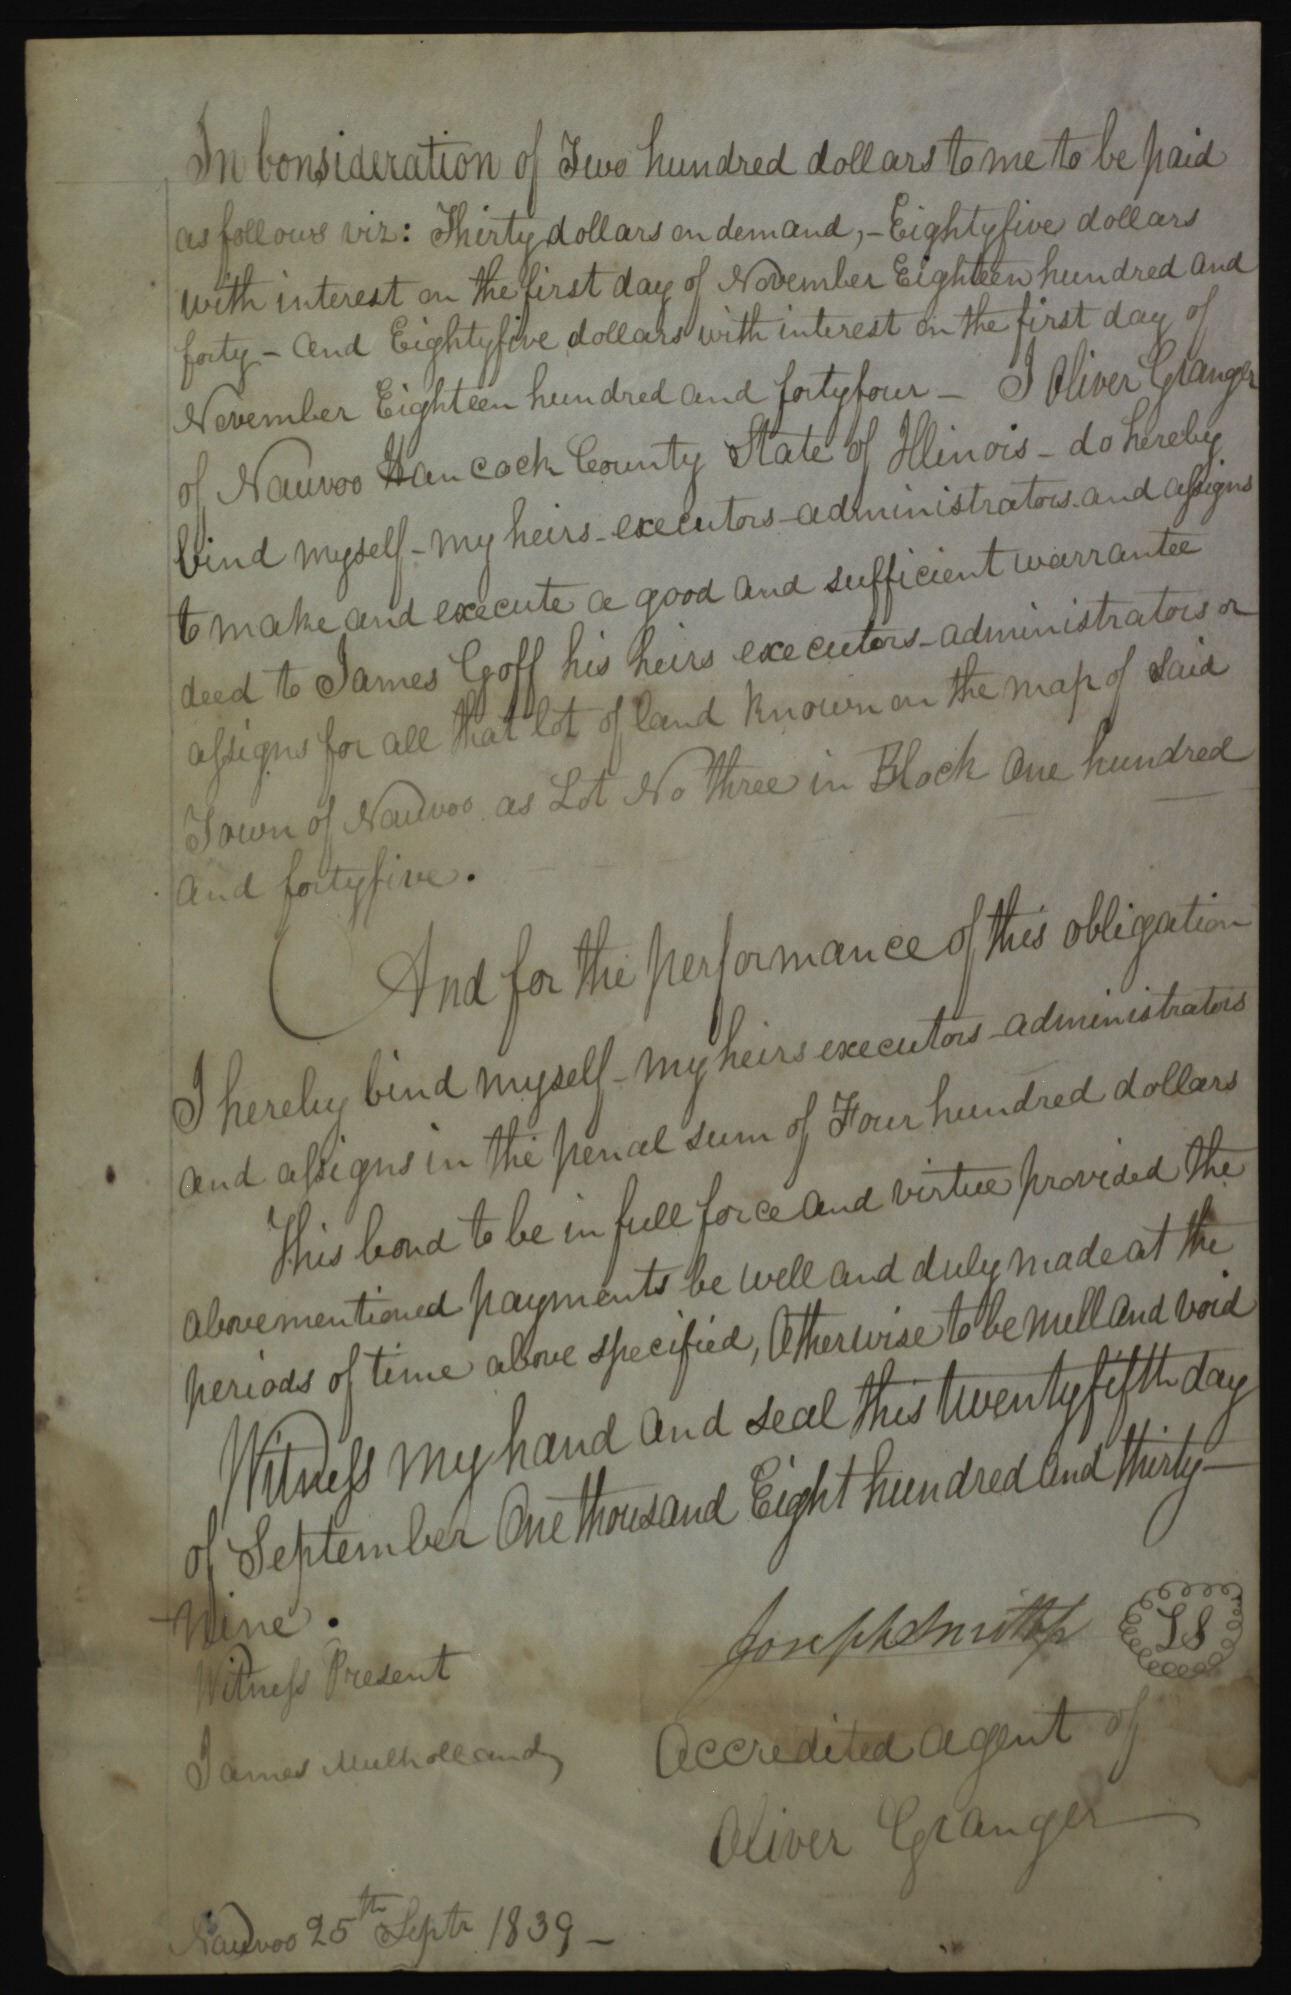 In Consideration of Two hundred dollars to me to be paid
as follows viz: Thirty dollars on demand,– Eightyfive dollars
with interest on the first day of November Eighteen hundred and
forty – and Eightyfive dollars with interest on the first day of
November Eighteen hundred and fortyfour – I Oliver Granger
of Nauvoo Hancock County State of Illinois – do hereby
bind myself – my heirs – executors – administrators and assigns
to make and execute a good and sufficient warrantee
deed to James Goff his heirs executors – administrators or
assigns for all that lot of land known on the map of said
Town of Nauvoo as Lot No three in Block One hundred
and fortyfive.
And for the performance of this obligation
I hereby bind myself – my heirs executors – administrators
and assigns in the penal sum of Four hundred dollars
This bond to be in full force and virtue provided the
abovementioned payments be well and duly made at the
periods of time above specified, Otherwise to be null and void
Witness my hand and seal this twentyfifth day
of September One thousand Eight hundred and thirty–
nine.
Joseph Smith Jr LS
Witness Present
James Mulholland
Accredited agent of
Oliver Granger
Nauvoo 25th Septr 1839 –